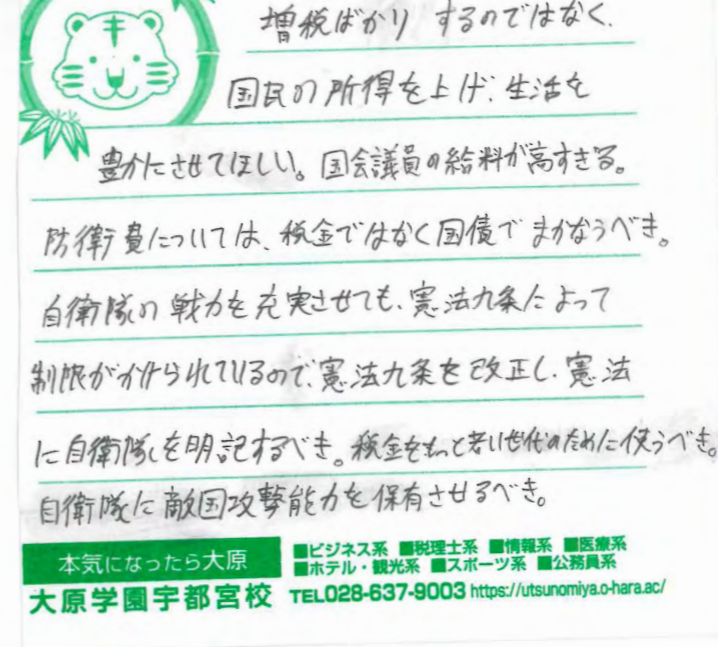 増税ばかりするのではなく、
国民の所得を上げ、生活を
豊かにさせてほしい。国会議員の給料が高すぎる。
防衛費については、税金ではなく国債でまかなうべき。
自衛隊の戦力を充実させても、憲法九条によって
制限がかけられているので、憲法九条を改正し、憲法
に自衛隊を明記するべき。税金をもっと若い世代のために使うべき。
自衛隊に敵国攻撃能力を保有させるべき。
本気になったら大原
■ビジネス系 ■税理士系 ■情報系 ■医療系
■ホテル・観光系 ■スポーツ系 ■公務員系
大原学園宇都宮校 TEL028-637-9003 https://utsunomiya.o-hara.ac/